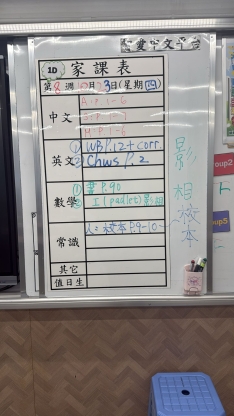 愛中文平台
1D 家課表
第8週 10月23日(星期四)
中文
A:P.1-6
M:P.1-6
英文 ①WB P.12+corr.
② Chws P.2
數學 ① 書P.90
② 工(padlet)影相
常識 人:校本P.9-10
其它
值日生
影相校本
oup2
oup5